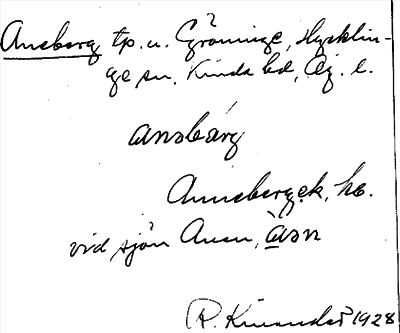 Ansberg tp. u. Gröninge, Hycklin-
ge sn. Kinda hd, Ög. l.
ansbárg
Annebergsek, hc.
vid sjön Ånsn, àsn
R. Kinander 1928